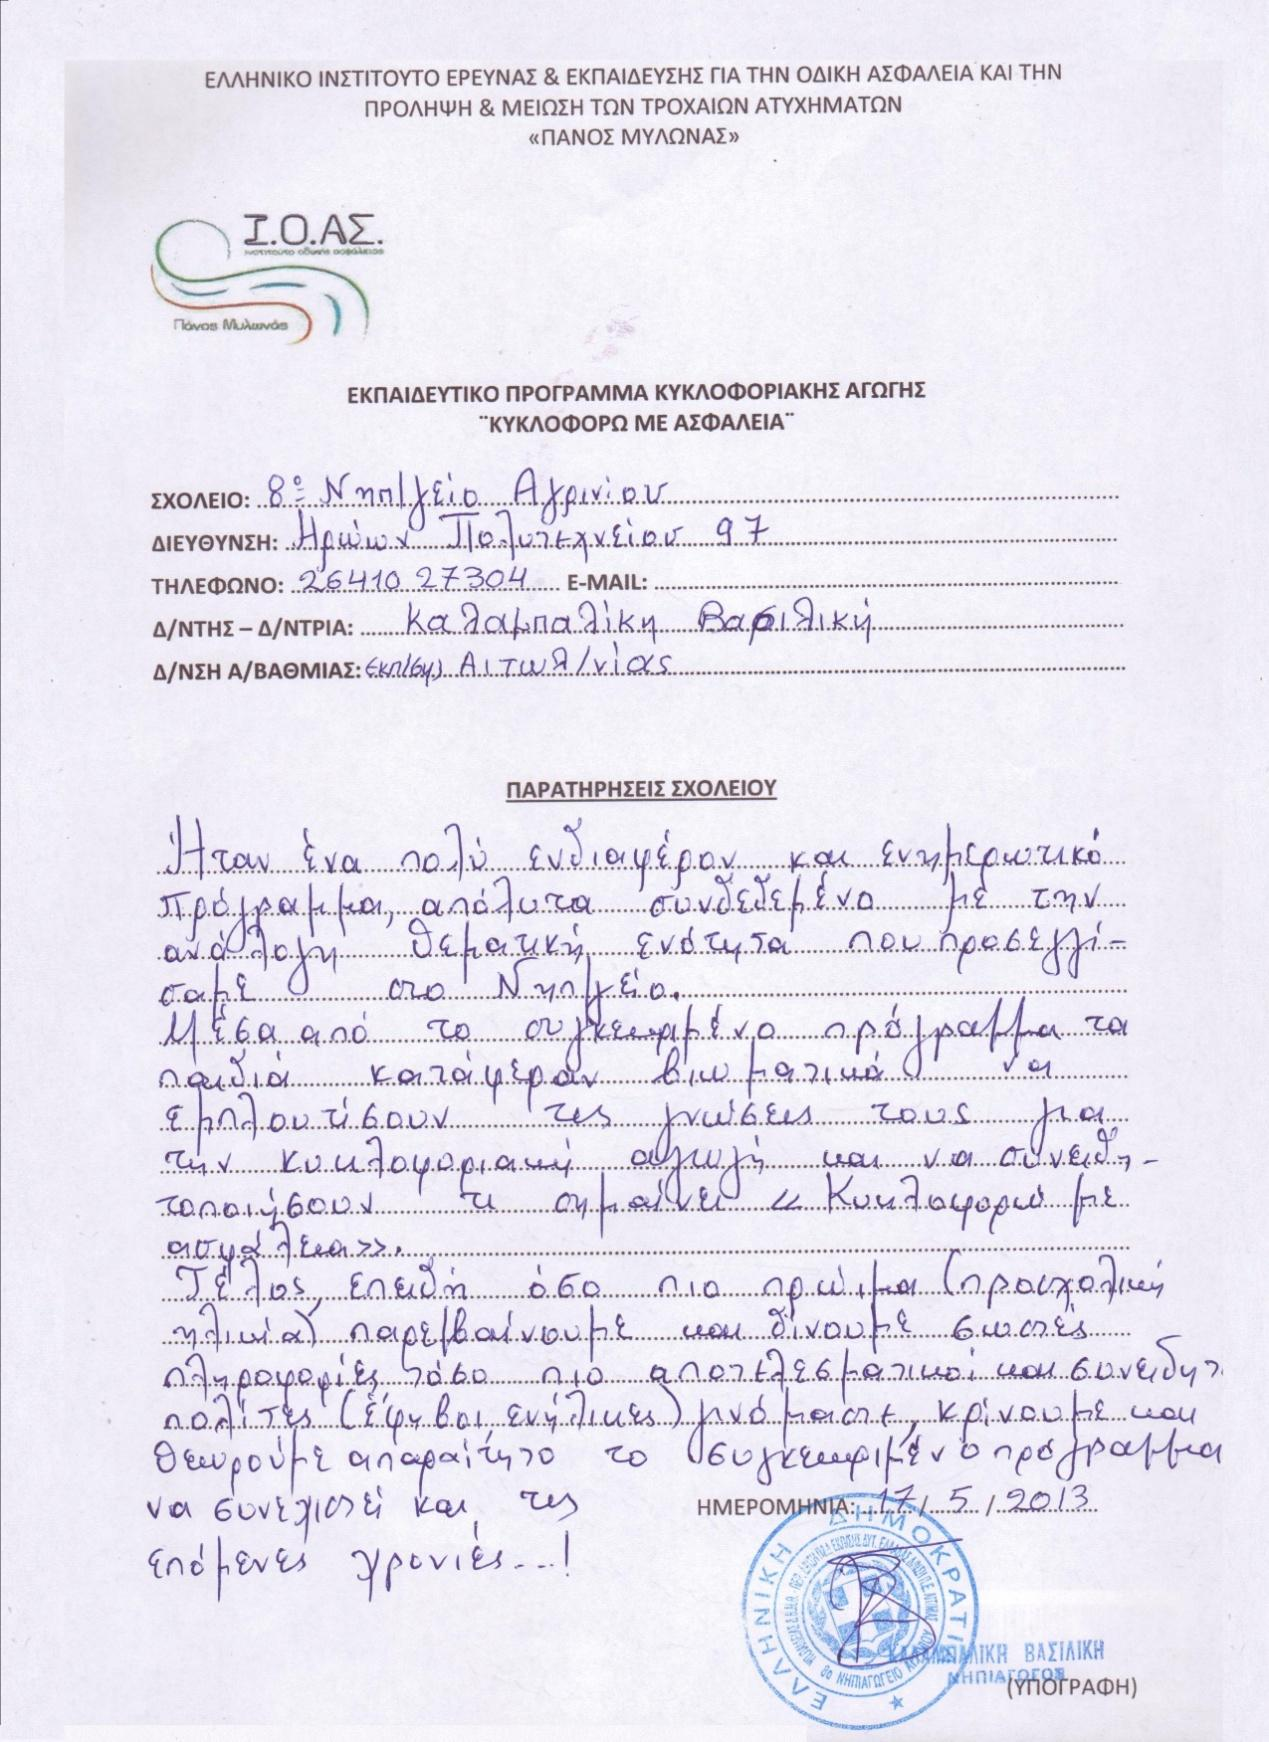 ΕΛΛΗΝΙΚΟ ΙΝΣΤΙΤΟΥΤΟ ΕΡΕΥΝΑΣ & ΕΚΠΑΙΔΕΥΣΗΣ ΓΙΑ ΤΗΝ ΟΔΙΚΗ ΑΣΦΑΛΕΙΑ ΚΑΙ ΤΗΝ
ΠΡΟΛΗΨΗ & ΜΕΙΩΣΗ ΤΩΝ ΤΡΟΧΑΙΩΝ ΑΤΥΧΗΜΑΤΩΝ
«ΠΑΝΟΣ ΜΥΛΩΝΑΣ»
Ι.Ο.ΑΣ.
ινστιτούτο οδικής ασφάλειας
Πάνος Μυλωνάς
ΕΚΠΑΙΔΕΥΤΙΚΟ ΠΡΟΓΡΑΜΜΑ ΚΥΚΛΟΦΟΡΙΑΚΗΣ ΑΓΩΓΗΣ
¨ΚΥΚΛΟΦΟΡΩ ΜΕ ΑΣΦΑΛΕΙΑ¨
ΣΧΟΛΕΙΟ: 8ο Νηπ/γείο Αγρινίου
ΔΙΕΥΘΥΝΣΗ: Ηρώων Πολυτεχνείου 97
ΤΗΛΕΦΩΝΟ: 26410 27304 E-MAIL:
Δ/ΝΤΗΣ – Δ/ΝΤΡΙΑ: Καλαμπαλίκη Βασιλική
Δ/ΝΣΗ Α/ΒΑΘΜΙΑΣ: Εκπ/σης Αιτωλ/νίας
ΠΑΡΑΤΗΡΗΣΕΙΣ ΣΧΟΛΕΙΟΥ
Ήταν ένα πολύ ενδιαφέρον και ενημερωτικό
πρόγραμμα, απόλυτα συνδεδεμένο με την
ανάλογη θεματική ενότητα που προσεγγί-
σαμε στο Νηπ/γείο.
Μέσα από το συγκεκριμένο πρόγραμμα τα
παιδιά κατάφεραν βιωματικά να
εμπλουτίσουν τις γνώσεις τους για
την κυκλοφοριακή αγωγή και να συνειδη-
τοποιήσουν τι σημαίνει «Κυκλοφορώ με
ασφάλεια».
Τέλος, επειδή όσο πιο πρώιμα (προσχολική
ηλικία) παρεμβαίνουμε και δίνουμε σωστές
πληροφορίες τόσο πιο αποτελεσματικοί και συνειδητ
πολίτες (έφηβοι, ενήλικες) γινόμαστε, κρίνουμε και
θεωρούμε απαραίτητο το συγκεκριμένο πρόγραμμα
να συνεχιστεί και τις
επόμενες χρονιές...!
ΗΜΕΡΟΜΗΝΙΑ: 17 / 5 / 2013
ΕΛΛΗΝΙΚΗ ΔΗΜΟΚΡΑΤΙ
8ο ΝΗΠΙΑΓΩΓΕΙΟ ΑΓΡΙΝΙΟΥ
ΚΑΛΑΜΠΑΛΙΚΗ ΒΑΣΙΛΙΚΗ
ΝΗΠΙΑΓΩΓΟΣ
(ΥΠΟΓΡΑΦΗ)